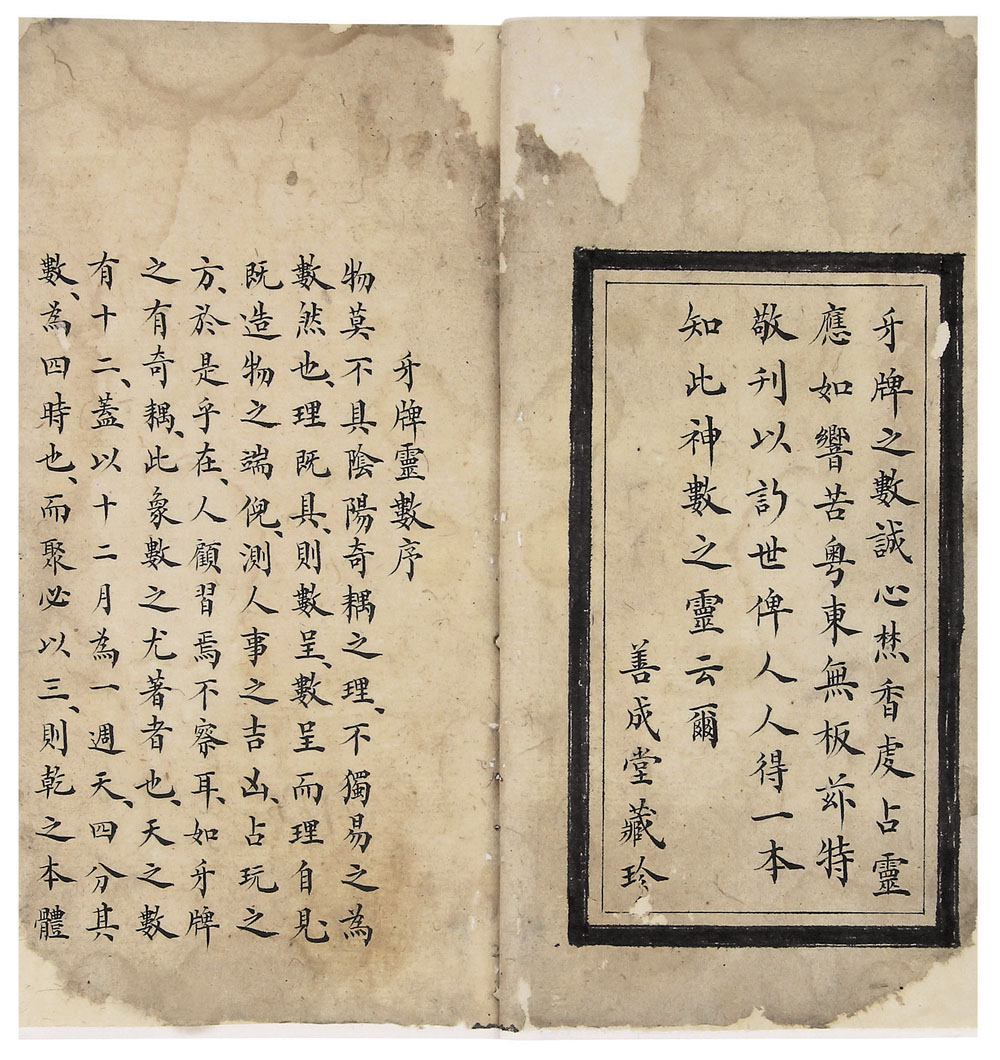 牙牌之數誠心焚香虔占靈
應如響苦粤東無板茲特
敬刊以世俾人人得一本
知此神數之靈云爾
善成堂藏珍
牙牌靈數序
物莫不具陰陽奇耦之理、不獨易之為
數然也、理既具、則數呈、數呈而理自見、
既造物之端倪、測人事之吉凶、占玩之
方、於是乎在、人顧習焉不察耳、如牙牌
之有奇耦、此象數之尤著者也、天之數
有十二、蓋以十二月為一週天、四分其
數、為四時也、而聚必以三、則乾之本體